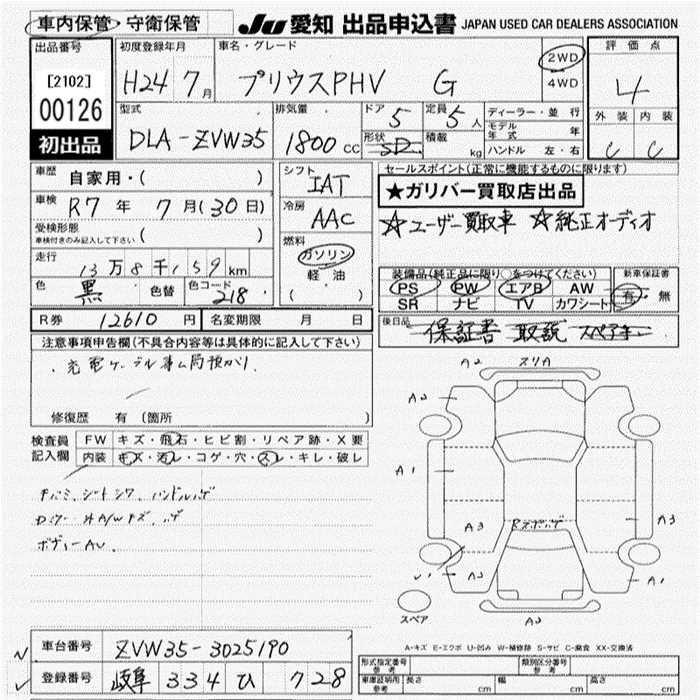 車内保管・守衛保管 JU 愛知 出品申込書 JAPAN USED CAR DEALERS ASSOCIATION
出品番号 初度登録年月 車名・グレード 2WD 4WD 評価点
[2102] 00126 H24 7月 プリウスPHV G 4
初出品 型式 排気量 ドア 定員 ディーラー・並行 外装 内装
DLA-ZVW35 1800cc 5 5人 モデル年式 年 C C
形状 SD 積載 kg ハンドル 左・右
車歴 自家用・( ) シフト IAT セールスポイント(正常に機能するものに限ります)
★ガリバー買取店出品
車検 R7年7月(30日) 冷房 AAC ☆ユーザー買取車 ☆純正オーディオ
受検形態 車検付きのみ記入して下さい ( )
燃料 ガソリン 軽油 ( ・ )
走行 13万8千159km
装備品(純正品に限り○をつけてください) 新車保証書
色 黒 色替 色コード 218
PS PW エアB AW 有・無
SR ナビ TV カワシート
R券 12610円 名変期限 月 日
後日品 保証書 取説 スペアキー
注意事項申告欄(不具合内容等は具体的に記入して下さい)
・充電ケーブル事ム局預かり
修復歴 有(箇所 )
検査員記入欄 FW キズ・飛石・ヒビ割・リペア跡・X要
内装 キズ・汚レ・コゲ・穴・スレ・キレ・破レ
シートシワ、ハンドルハゲ
A/Wキズ、ハゲ
ボディーAU.
A2 スリA
A2
A1
A3 Rスポハゲ A3
A1
A2
スペア
A-キズ E-エクボ U-凹み W-補修跡 S-サビ C-腐食 XX-交換済
車台番号 ZVW35-3025190
登録番号 岐阜 334 ひ 728
形式指定番号 参考 類別区分番号 参考
車庫証明用 参考 長さ cm 幅 cm 高さ cm